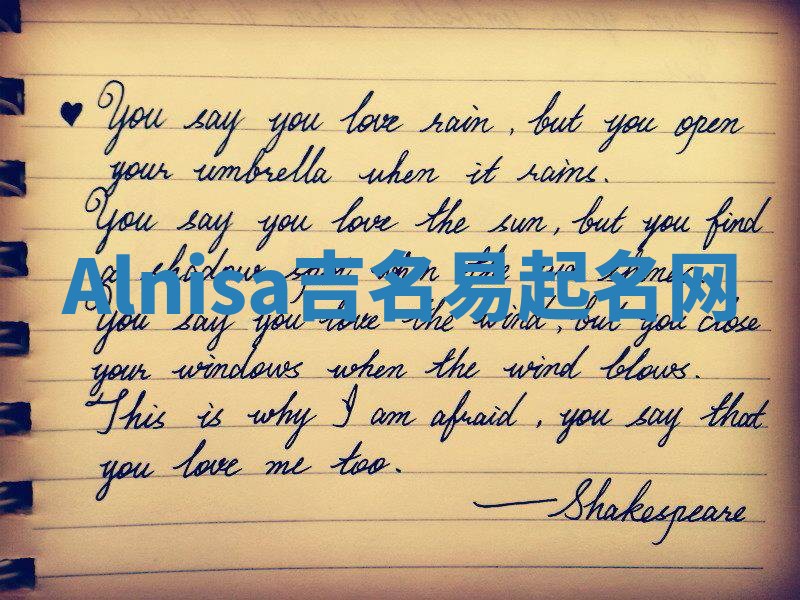 ♥ You say you love rain, but you open
your umbrella when it rains.
You say you love the sun, but you find
a shadow spot when the sun shines.
Alnisa吉名易起名网
You say you love the wind, but you close
your windows when the wind blows.
This is why I am afraid, you say that
you love me too.
—Shakespeare